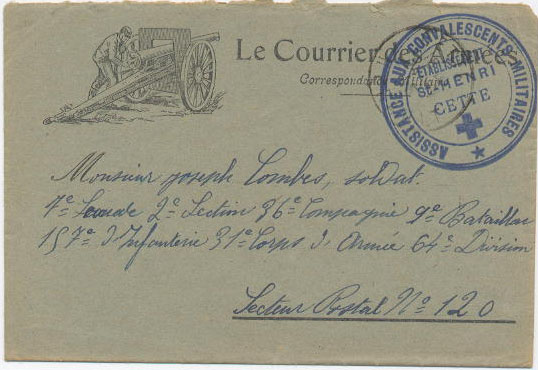 Le Courrier des Armées
Correspondance Militaire
ASSISTANCE AUX CONVALESCENTS MILITAIRES
ETABLISSEMENT
ST HENRI
CETTE
Monsieur Joseph Combes, soldat.
7e Escouade 2e Section 36e Compagnie 9e Bataillon
157e d'Infanterie 31e Corps d'Armée 64e Division
Secteur Postal No 120